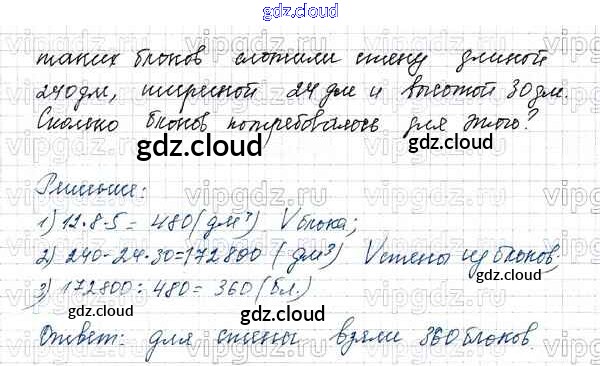 gdz.cloud
таких блоков сложили стену длиной
240 дм, шириной 24 дм и высотой 30 дм.
Сколько блоков потребовалось для этого?
gdz.cloud
gdz.cloud
Решение:
1) 12·8·5 = 480 (дм³) V блока;
2) 240·24·30 = 172800 (дм³) V стены из блоков;
gdz.cloud
3) 172800 : 480 = 360 (бл.)
gdz.cloud
Ответ: для стены взяли 360 блоков.
gdz.cloud